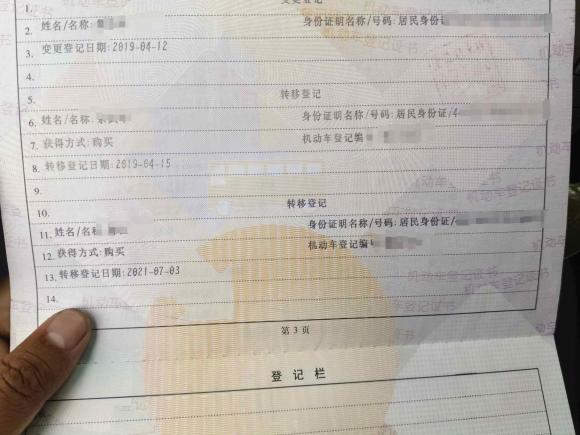 1. 变更登记
2. 姓名/名称: 身份证明名称/号码: 居民身份证
3. 变更登记日期: 2019-04-12
4.
5. 转移登记
6. 姓名/名称: 身份证明名称/号码: 居民身份证/4
7. 获得方式: 购买 机动车登记编
8. 转移登记日期: 2019-04-15
9.
10. 转移登记
11. 姓名/名 身份证明名称/号码: 居民身份证/
12. 获得方式: 购买 机动车登记编
13. 转移登记日期: 2021-07-03
14.
第 3 页
登 记 栏
机动车登记证书